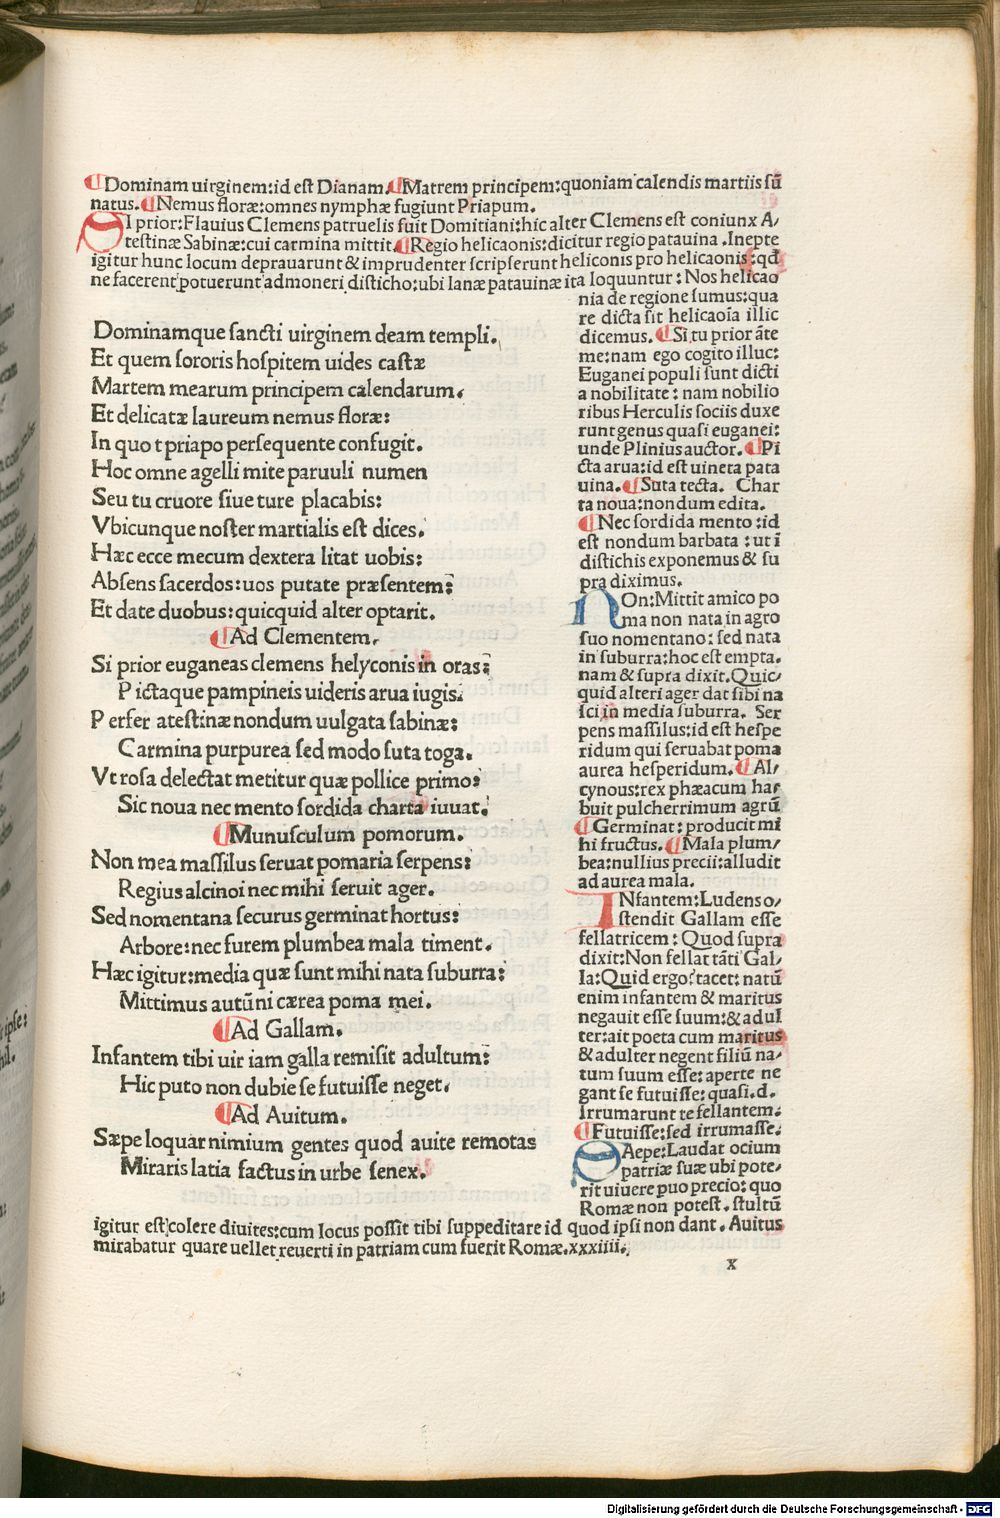 ¶Dominam uirginem:id eſt Dianam.¶Matrem principem:quoniam calendis martiis ſū
natus.¶Nemus floræ:omnes nymphæ fugiunt Priapum.
SI prior:Flauius Clemens patruelis fuit Domitiani:hic alter Clemens eſt coniunx A/
teſtinæ Sabinæ:cui carmina mittit.¶Regio helicaonis:dicitur regio patauina.Inepte
igitur hunc locum deprauarunt & imprudenter ſcripſerunt heliconis pro helicaonis:qd
ne facerent potuerunt admoneri diſticho:ubi lanæ patauinæ ita loquuntur: Nos helicao
nia de regione ſumus:qua
re dicta ſit helicaoīa illic
dicemus.¶Si tu prior āte
me:nam ego cogito illuc:
Euganei populi ſunt dicti
a nobilitate: nam nobilio
ribus Herculis ſociis duxe
runt genus quaſi euganei:
unde Plinius auctor.¶Pi
cta arua:id eſt uineta pata
uina.¶Suta tecta. Char
ta noua:nondum edita.
¶Nec ſordida mento:id
eſt nondum barbata:ut ī
diſtichis exponemus & ſu
pra diximus.
NOn:Mittit amico po
ma non nata in agro
ſuo nomentano: ſed nata
in ſuburra:hoc eſt empta.
nam & ſupra dixit.Quic/
quid alteri ager dat ſibi na
ſci in media ſuburra. Ser
pens maſſilus:id eſt heſpe
ridum qui ſeruabat poma
aurea heſperidum.¶Al/
cynous:rex phæacum ha
buit pulcherrimum agrū
¶Germinat:producit mi
hi fructus.¶Mala plum/
bea:nullius precii:alludit
ad aurea mala.
INfantem:Ludens o/
ſtendit Gallam eſſe
fellatricem: Quod ſupra
dixit:Non fellat tāti Gal/
la:Quid ergo?tacet: natū
enim infantem & maritus
negauit eſſe ſuum:& adul
ter:ait poeta cum maritus
& adulter negent filiū na/
tum ſuum eſſe: aperte ne
gant ſe futuiſſe: quaſi.d.
Irrumarunt te fellantem.
¶Futuiſſe:ſed irrumaſſe.
SAepe:Laudat ocium
patriæ ſuæ ubi pote/
rit uiuere puo precio: quo
Romæ non poteſt. ſtultū
igitur eſt colere diuites:cum locus poſſit tibi ſuppeditare id quod ipſi non dant. Auitus
mirabatur quare uellet reuerti in patriam cum fuerit Romæ.xxxiiii.
Dominamque ſancti uirginem deam templi.
Et quem ſororis hoſpitem uides caſtæ
Martem mearum principem calendarum.
Et delicatæ laureum nemus floræ:
In quo t priapo perſequente confugit.
Hoc omne agelli mite paruuli numen
Seu tu cruore ſiue ture placabis:
Vbicunque noſter martialis eſt dices.
Hæc ecce mecum dextera litat uobis:
Abſens ſacerdos:uos putate præſentem:
Et date duobus:quicquid alter optarit.
¶Ad Clementem.
Si prior euganeas clemens helyconis in oras:
Pictaque pampineis uideris arua iugis.
Perfer ateſtinæ nondum uulgata ſabinæ:
Carmina purpurea ſed modo ſuta toga.
Vt roſa delectat metitur quæ pollice primo:
Sic noua nec mento ſordida charta iuuat.
¶Munuſculum pomorum.
Non mea maſſilus ſeruat pomaria ſerpens:
Regius alcinoi nec mihi ſeruit ager.
Sed nomentana ſecurus germinat hortus:
Arbore:nec furem plumbea mala timent.
Hæc igitur:media quæ ſunt mihi nata ſuburra:
Mittimus autūni cærea poma mei.
¶Ad Gallam.
Infantem tibi uir iam galla remiſit adultum:
Hic puto non dubie ſe futuiſſe neget.
¶Ad Auitum.
Sæpe loquar nimium gentes quod auite remotas
Miraris latia factus in urbe ſenex.
x
Digitalisierung gefördert durch die Deutsche Forschungsgemeinschaft - DFG